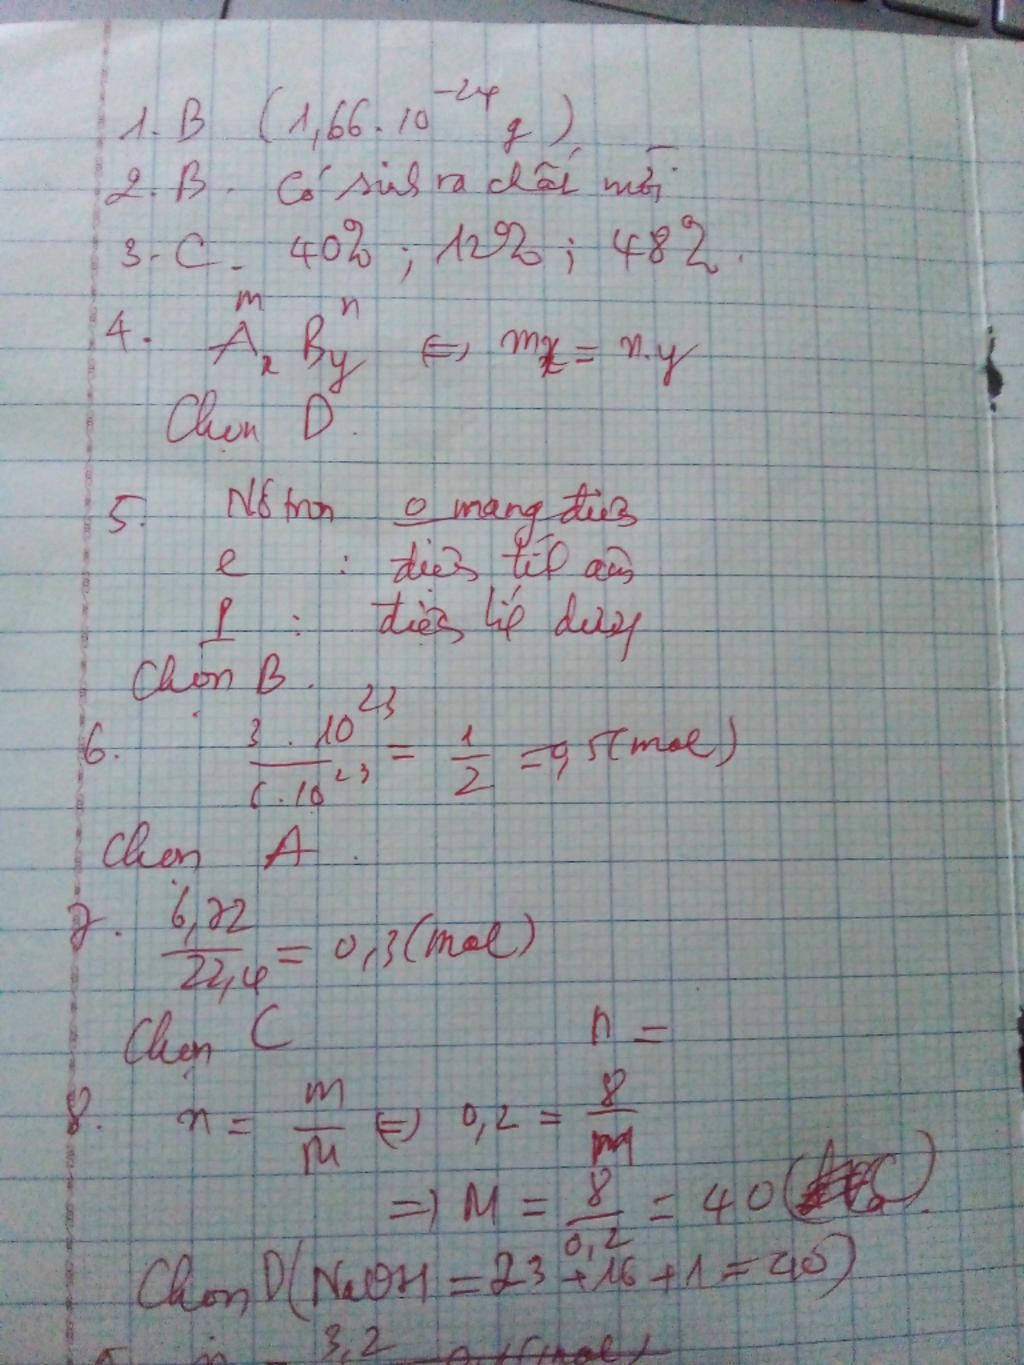 1. B (1,66.10⁻²⁴ g)
2. B. Có sinh ra chất mới
3. C. 40%; 12%; 48%.
4. Aₓᵐ Bᵧⁿ ⇔ mx = n.y
Chọn D.
5. Nơtron 0 mang điện
e : điện tích âm
p : điện tích dương
Chọn B.
6. 3.10²³ / 6.10²³ = 1/2 = 0,5 (mol)
Chọn A.
7. 6,72 / 22,4 = 0,3 (mol)
Chọn C n =
8. n = m/M ⇔ 0,2 = 8/M
=> M = 8/0,2 = 40
Chọn D (NaOH = 23 + 16 + 1 = 40)
3,2